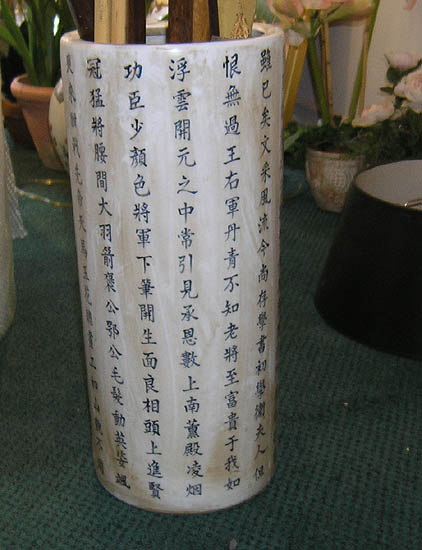 雖已矣文采風流今尚存學書初學衛夫人但
恨無過王右軍丹青不知老將至富貴于我如
浮雲開元之中常引見承恩數上南薰殿凌烟
功臣少顏色將軍下筆開生面良相頭上進賢
冠猛將腰間大羽箭褒公鄂公毛髮動英姿颯
爽來酣戰先帝天馬玉花驄畫工如山貌不同